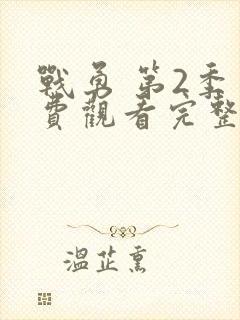 戰勇 第2季
費觀看完整
溫芷熏